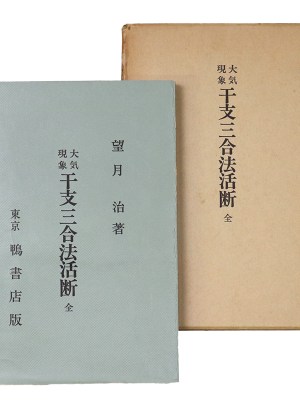 望月治著
大気現象 干支三合法活断 全
東京 鴨書店版
大気現象 干支三合法活断 全